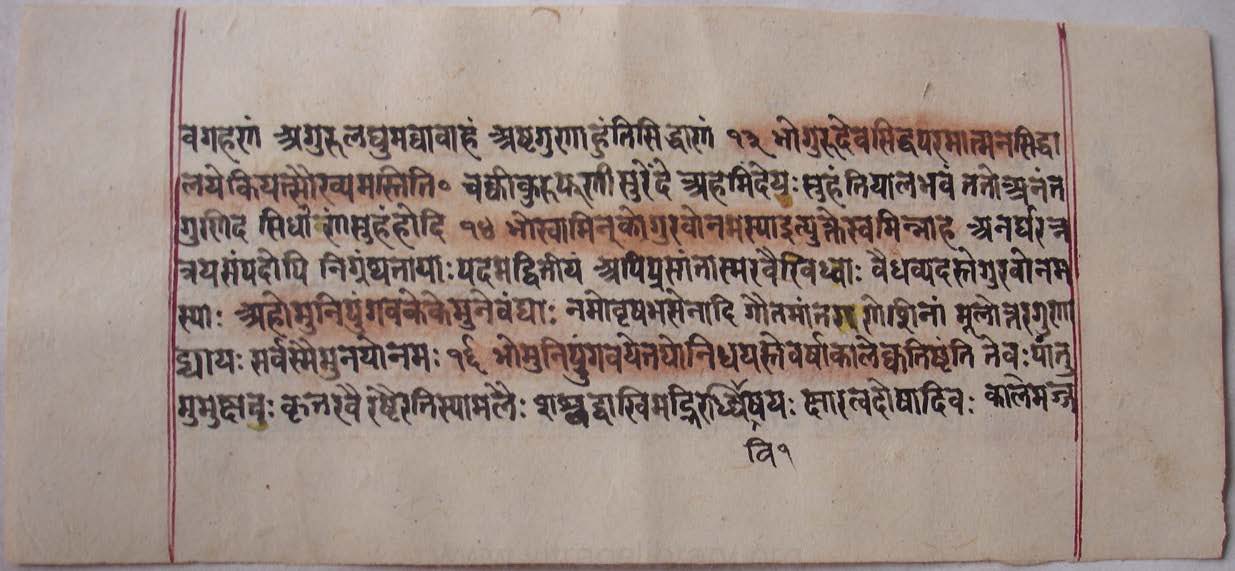 वगहरणं अगुरुलघुमवावाहं अष्टगुरणाहुंतिसिद्धारणं १३ भोगुरुदेवसिद्धपरमात्मनसिद्धा
लये कियत्सौरव्यमस्तीति॰ चक्कीकुरुफरणीसुरेंदे अहमिंदेयः सुहंतियालभवं ततोअनंत
गुरिगदं सिधारणंरगसुहंहोदि १४ भोस्वामिन् कोगुरवोनमस्याइत्युक्तेस्वमिन्नाह अनर्घरत्न
त्रयसंपदोपि निग्रंथतायाः पदमद्वितीयं अपिप्रसांतास्मरवैरिवध्वाः वैधव्यदस्तेगुरवोनम
स्याः अहोमुनिपुंगवकेकेमुनेवंद्याः नमोवृषभसेनादि गौतमांतगरणेशिनां मूलोत्तरगुरणा
द्यायः सर्वस्मैमुनयोनमः १६ भोमुनिपुंगवयेतपोनिधयस्तेवर्षाकालेक्वतिष्टंति तेवःपांतु
मुमुक्षवः कृतरवैरष्टैरतिस्यामलैः शस्वद्वारिवमद्भिरर्ब्धिषयः क्षारत्वदोषादिवः कालेमज्ज
वि१